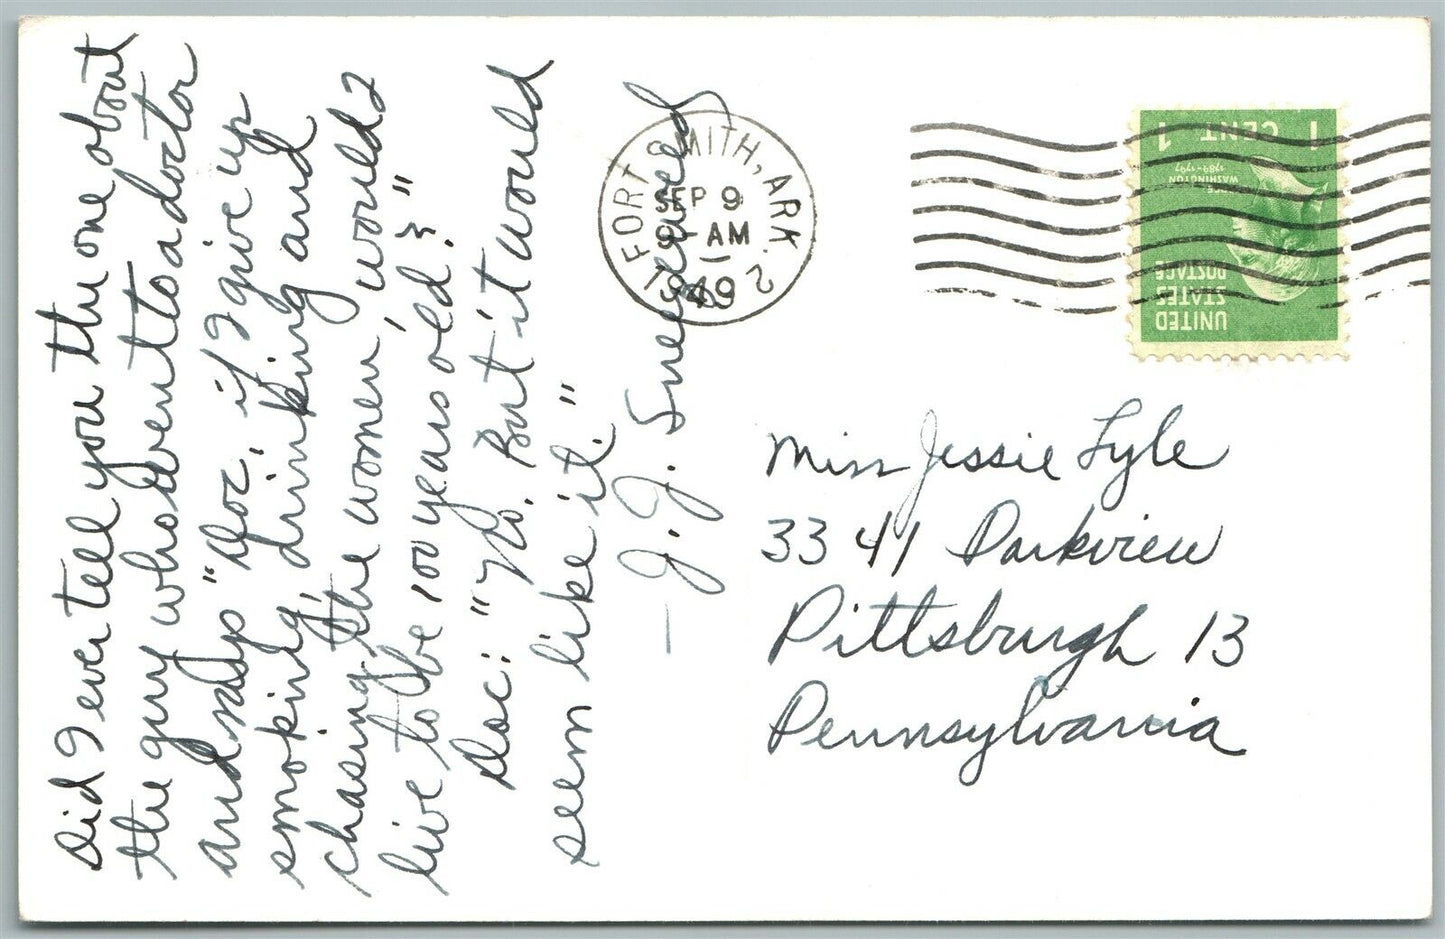 Did I ever tell you the one about
the guy who went to a doctor
and says "Doc, if I give up
smoking, drinking and
chasing the women, would I
live to be 100 years old?"
Doc: "No. But it would
seem like it."
— J.J.
FORT SMITH, ARK. 2
SEP 9
9 AM
1949
1 CENT 1
WASHINGTON
1789-1797
UNITED
STATES
POSTAGE
Miss Jessie Lyle
3341 Parkview
Pittsburgh 13
Pennsylvania